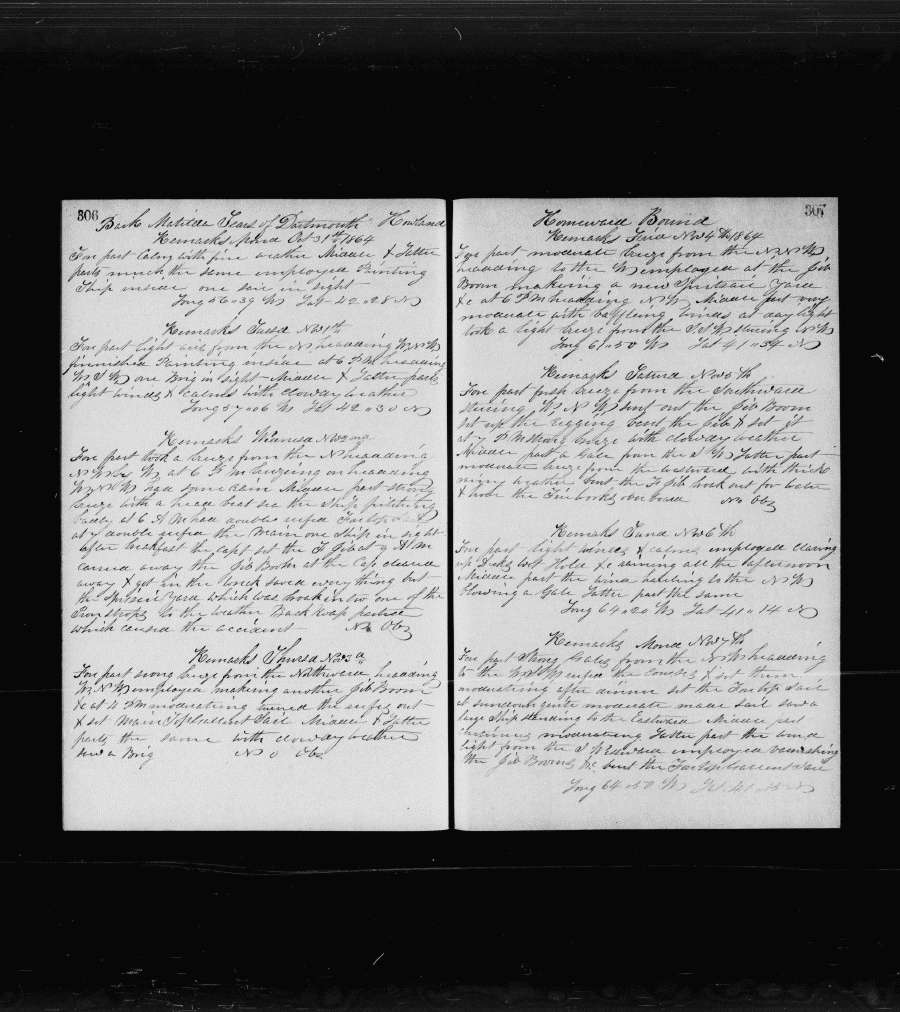 306
Bark Matilda Sears of Dartmouth Howland
Remarks Mond Oct 31th 1864
Fore part Calm with fine weather Middle & Latter
parts much the same employed Painting
Ship inside one sail in sight
Long 56=39 W Lat 42=28 N
Remarks Tuesd Nov 1th
Fore part light airs from the N heading WNW
finnished Painting inside at 6 PM heading
WSW one Brig in sight Middle & Latter parts
light winds & Calms with clowdy weather
Long 57=06 W Lat 42=30 N
Remarks Wednesd Nov 2nd
Fore part took a breeze from the N heading
NW by W at 6 PM breezing on heading
WNW had some rain Middle part strong
breeze with a head beat sea the Ship pitching
badly at 6 AM had double reefed Foretopsail
at 7 double reefed the Main one Ship in sight
after breakfast the Capt set the F Jib at 9 AM
carried away the Jib Boom at the Cap cleared
away & got in the Wreck saved everything but
the Spritsail Yard which was broak in two one of the
Iron straps to the weather Back Roap parted
which caused the accident No Obs
Remarks Thursd Nov 3d
Fore part strong breeze from the Northward heading
WNW employed making another Jib Boom
&c at 4 PM moderating turned the reefs out
& set Main TopGallent Sail Middle & Latter
parts the same with clowdy weather
saw a Brig No Obs
307
Homeward Bound
Remarks Frid Nov 4th 1864
Fore part moderate breeze from the NNW
heading to the W employed at the Jib
Boom makeing a new Spritsail Yard
&c at 6 PM heading NW Middle part very
moderate with baffleing winds at daylight
took a light breeze from the SSW steering WNW
Long 61=50 W Lat 41=34 N
Remarks Saturd Nov 5th
Fore part fresh breeze from the Southward
steering WNW sent out the Jib Boom
set up the rigging bent the Jib & set it
at 7 PM strong breeze with clowdy weather
Middle part a Gale from the SW Latter part
moderate breeze from the westward with thick
rainy weather bent the F Jib broak out for water
& hove the Tire books over board No Obs
Remarks Sund Nov 6th
Fore part light winds & calms employed clearing
up Decks Wet Hold &c raining all the afternoon
Middle part the wind hauling to the NW
blowing a Gale Latter part the same
Long 64=20 W Lat 41=14 N
Remarks Mond Nov 7th
Fore part Strong Gales from the NW heading
to the WSW reefed the Courses & set them
moderating after dinner set the Foretop Sail
at sundown quite moderate made sail saw a
large Ship standing to the Eastward Middle part
continues moderating Latter part the wind
light from the S Westward employed varnishing
the Jib Boom &c bent the Foretop Gallent Sail
Long 64=50 W Lat 41